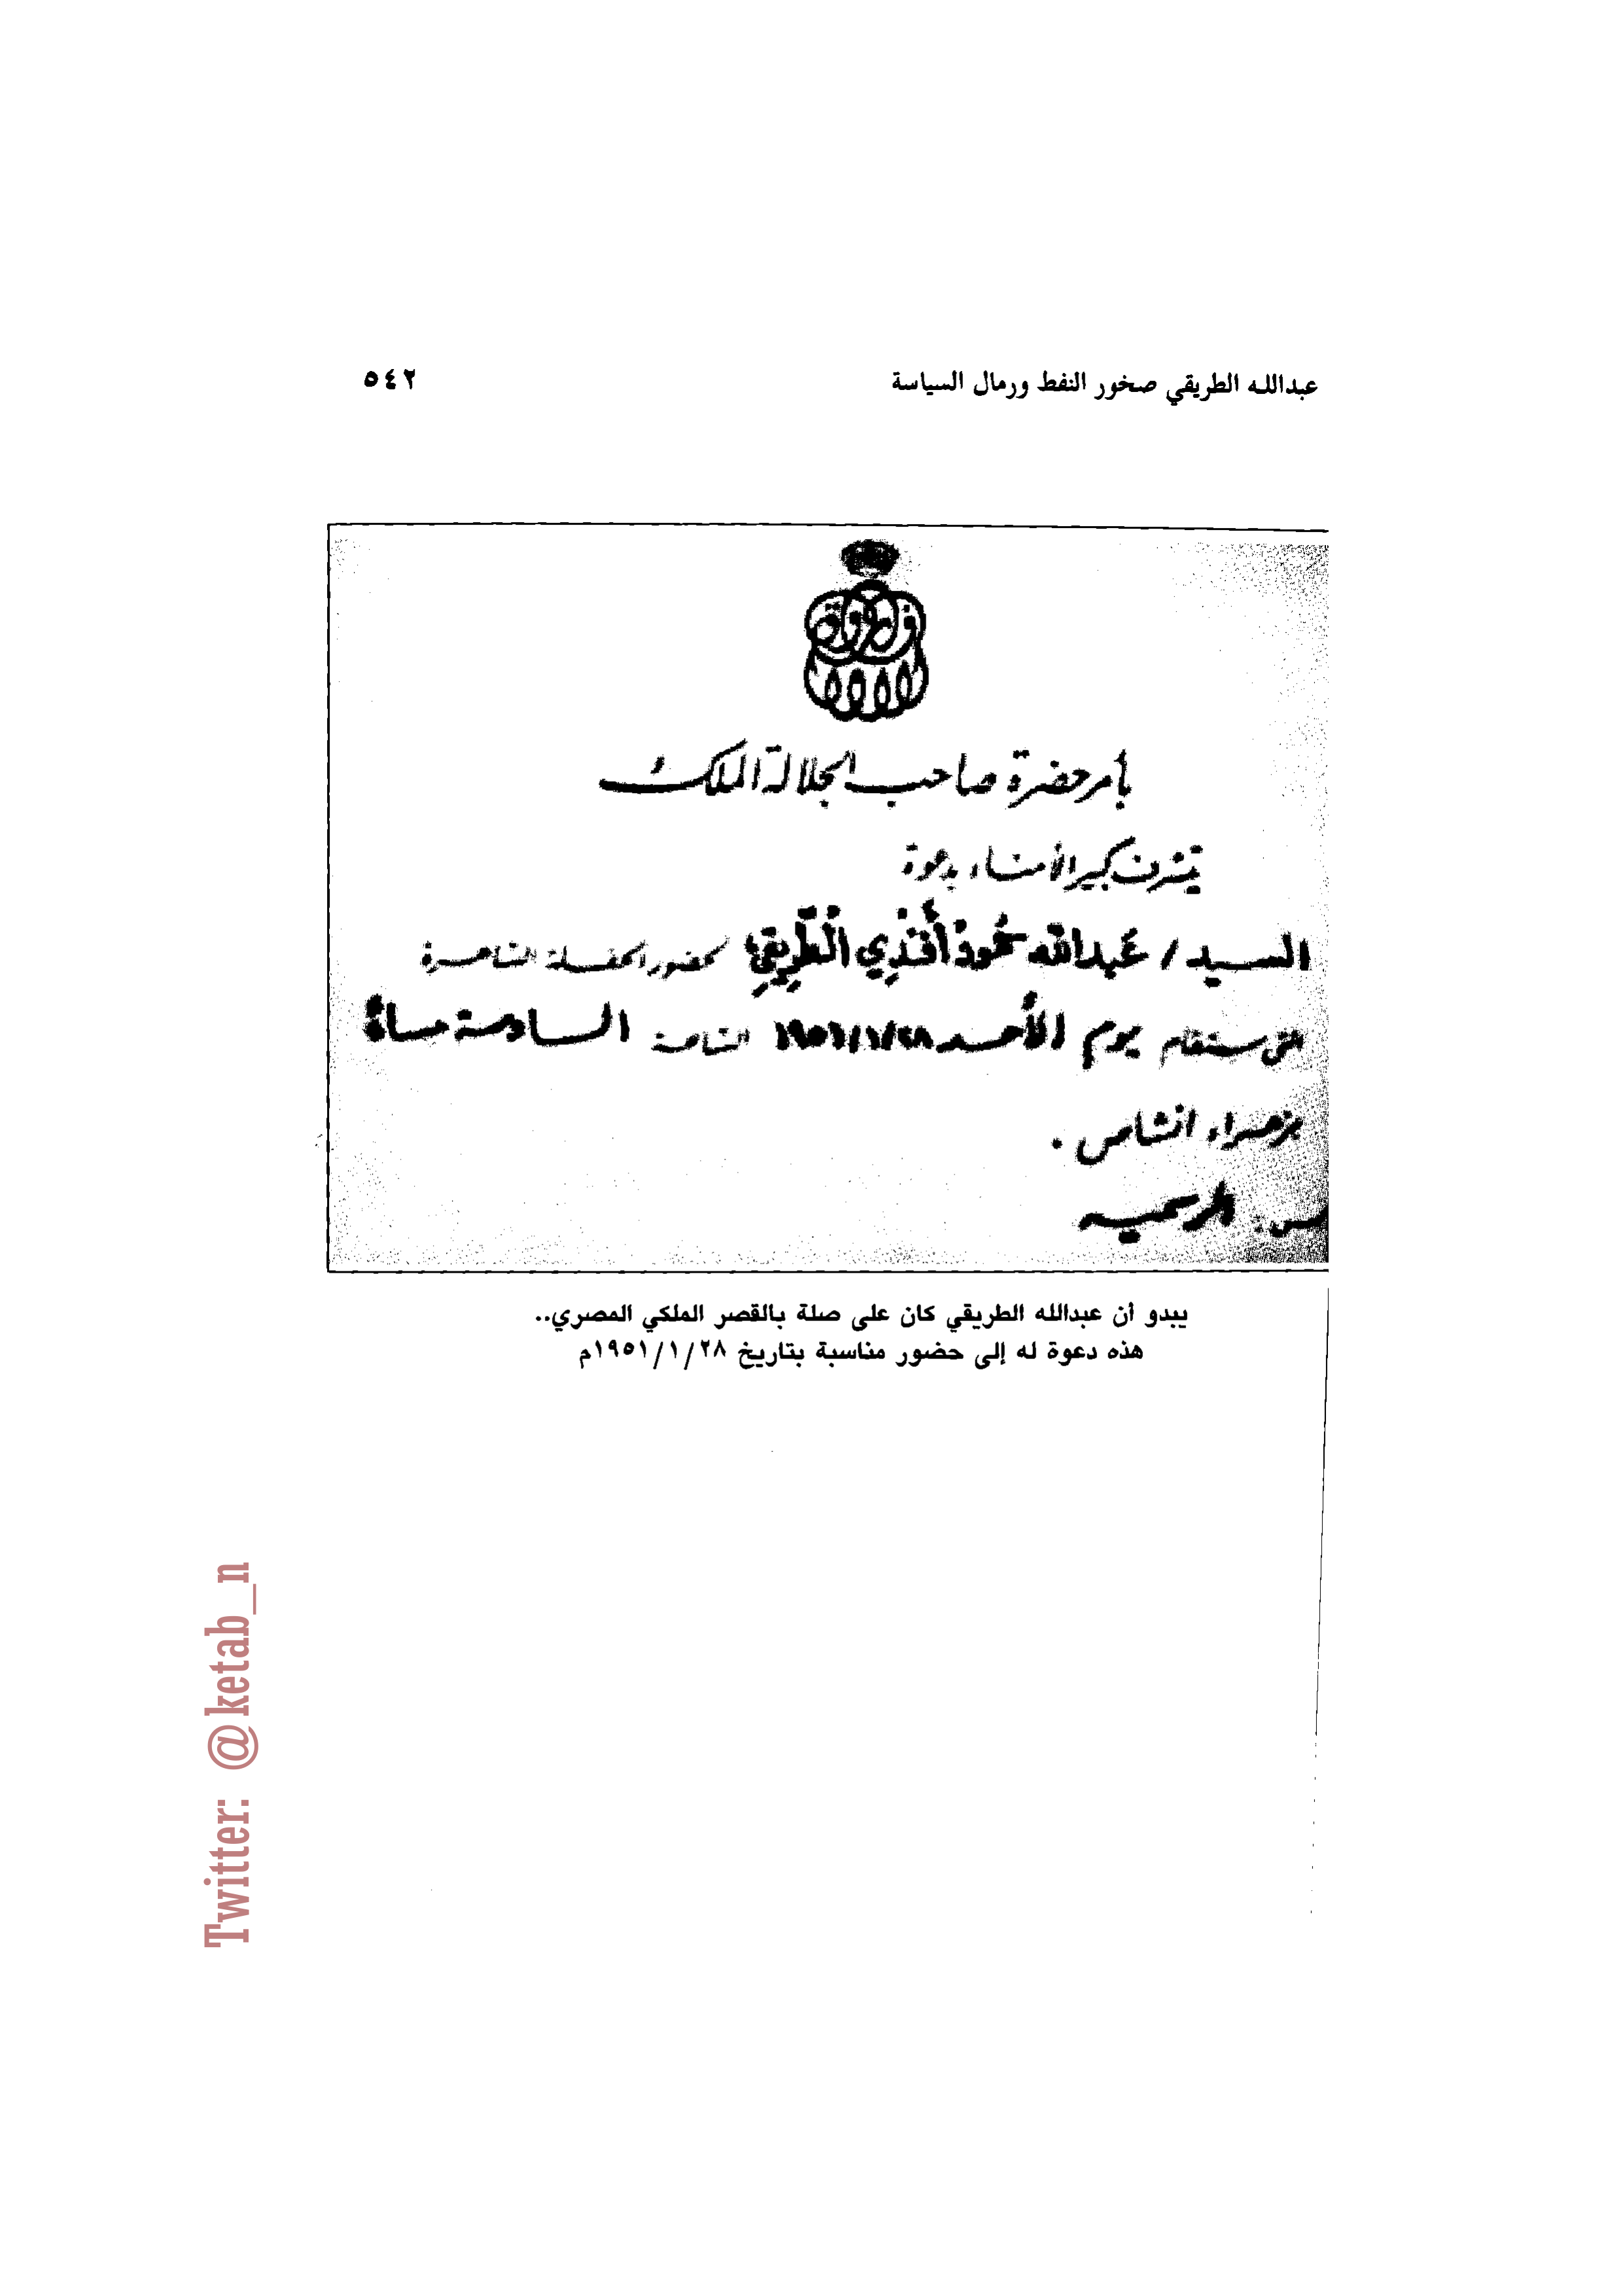 عبدالله الطريقي صخور النفط ورمال السياسة
٥٤٢
فاروق
بأمر حضرة صاحب الجلالة الملك
يتشرف كبير الأمناء بدعوة
السيد / عبدالله حمود أفندي الطريقي لحضور الحفلة الساهرة
التى ستقام يوم الأحد ١٩٥١/١/٢٨ الساعة السادسة مساءً
بزهراء انشاص .
الرسمية
يبدو أن عبدالله الطريقي كان على صلة بالقصر الملكي المصري..
هذه دعوة له إلى حضور مناسبة بتاريخ ١٩٥١/١/٢٨م
Twitter: @ketab_n